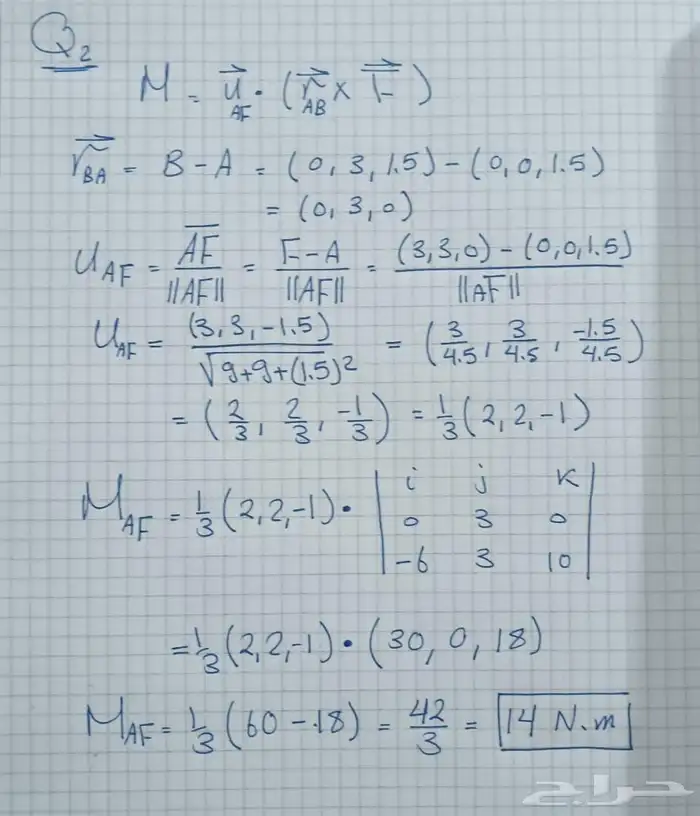 Q2
M = u⃗_AF · (r⃗_AB × F⃗)
r⃗_BA = B - A = (0, 3, 1.5) - (0, 0, 1.5)
= (0, 3, 0)
u_AF = AF / ||AF|| = F - A / ||AF|| = (3, 3, 0) - (0, 0, 1.5) / ||AF||
u_AF = (3, 3, -1.5) / √9+9+(1.5)² = (3/4.5, 3/4.5, -1.5/4.5)
= (2/3, 2/3, -1/3) = 1/3 (2, 2, -1)
M_AF = 1/3 (2, 2, -1) · | i j k
0 3 0
-6 3 10 |
= 1/3 (2, 2, -1) · (30, 0, 18)
M_AF = 1/3 (60 - 18) = 42/3 = 14 N.m
حراج